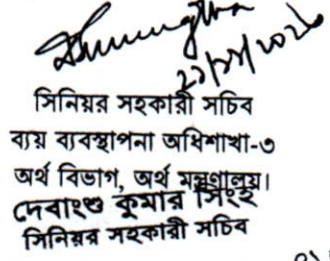 সিনিয়র সহকারী সচিব
ব্যয় ব্যবস্থাপনা অধিশাখা-৩
অর্থ বিভাগ, অর্থ মন্ত্রণালয়।
দেবাংশু কুমার সিংহ
সিনিয়র সহকারী সচিব